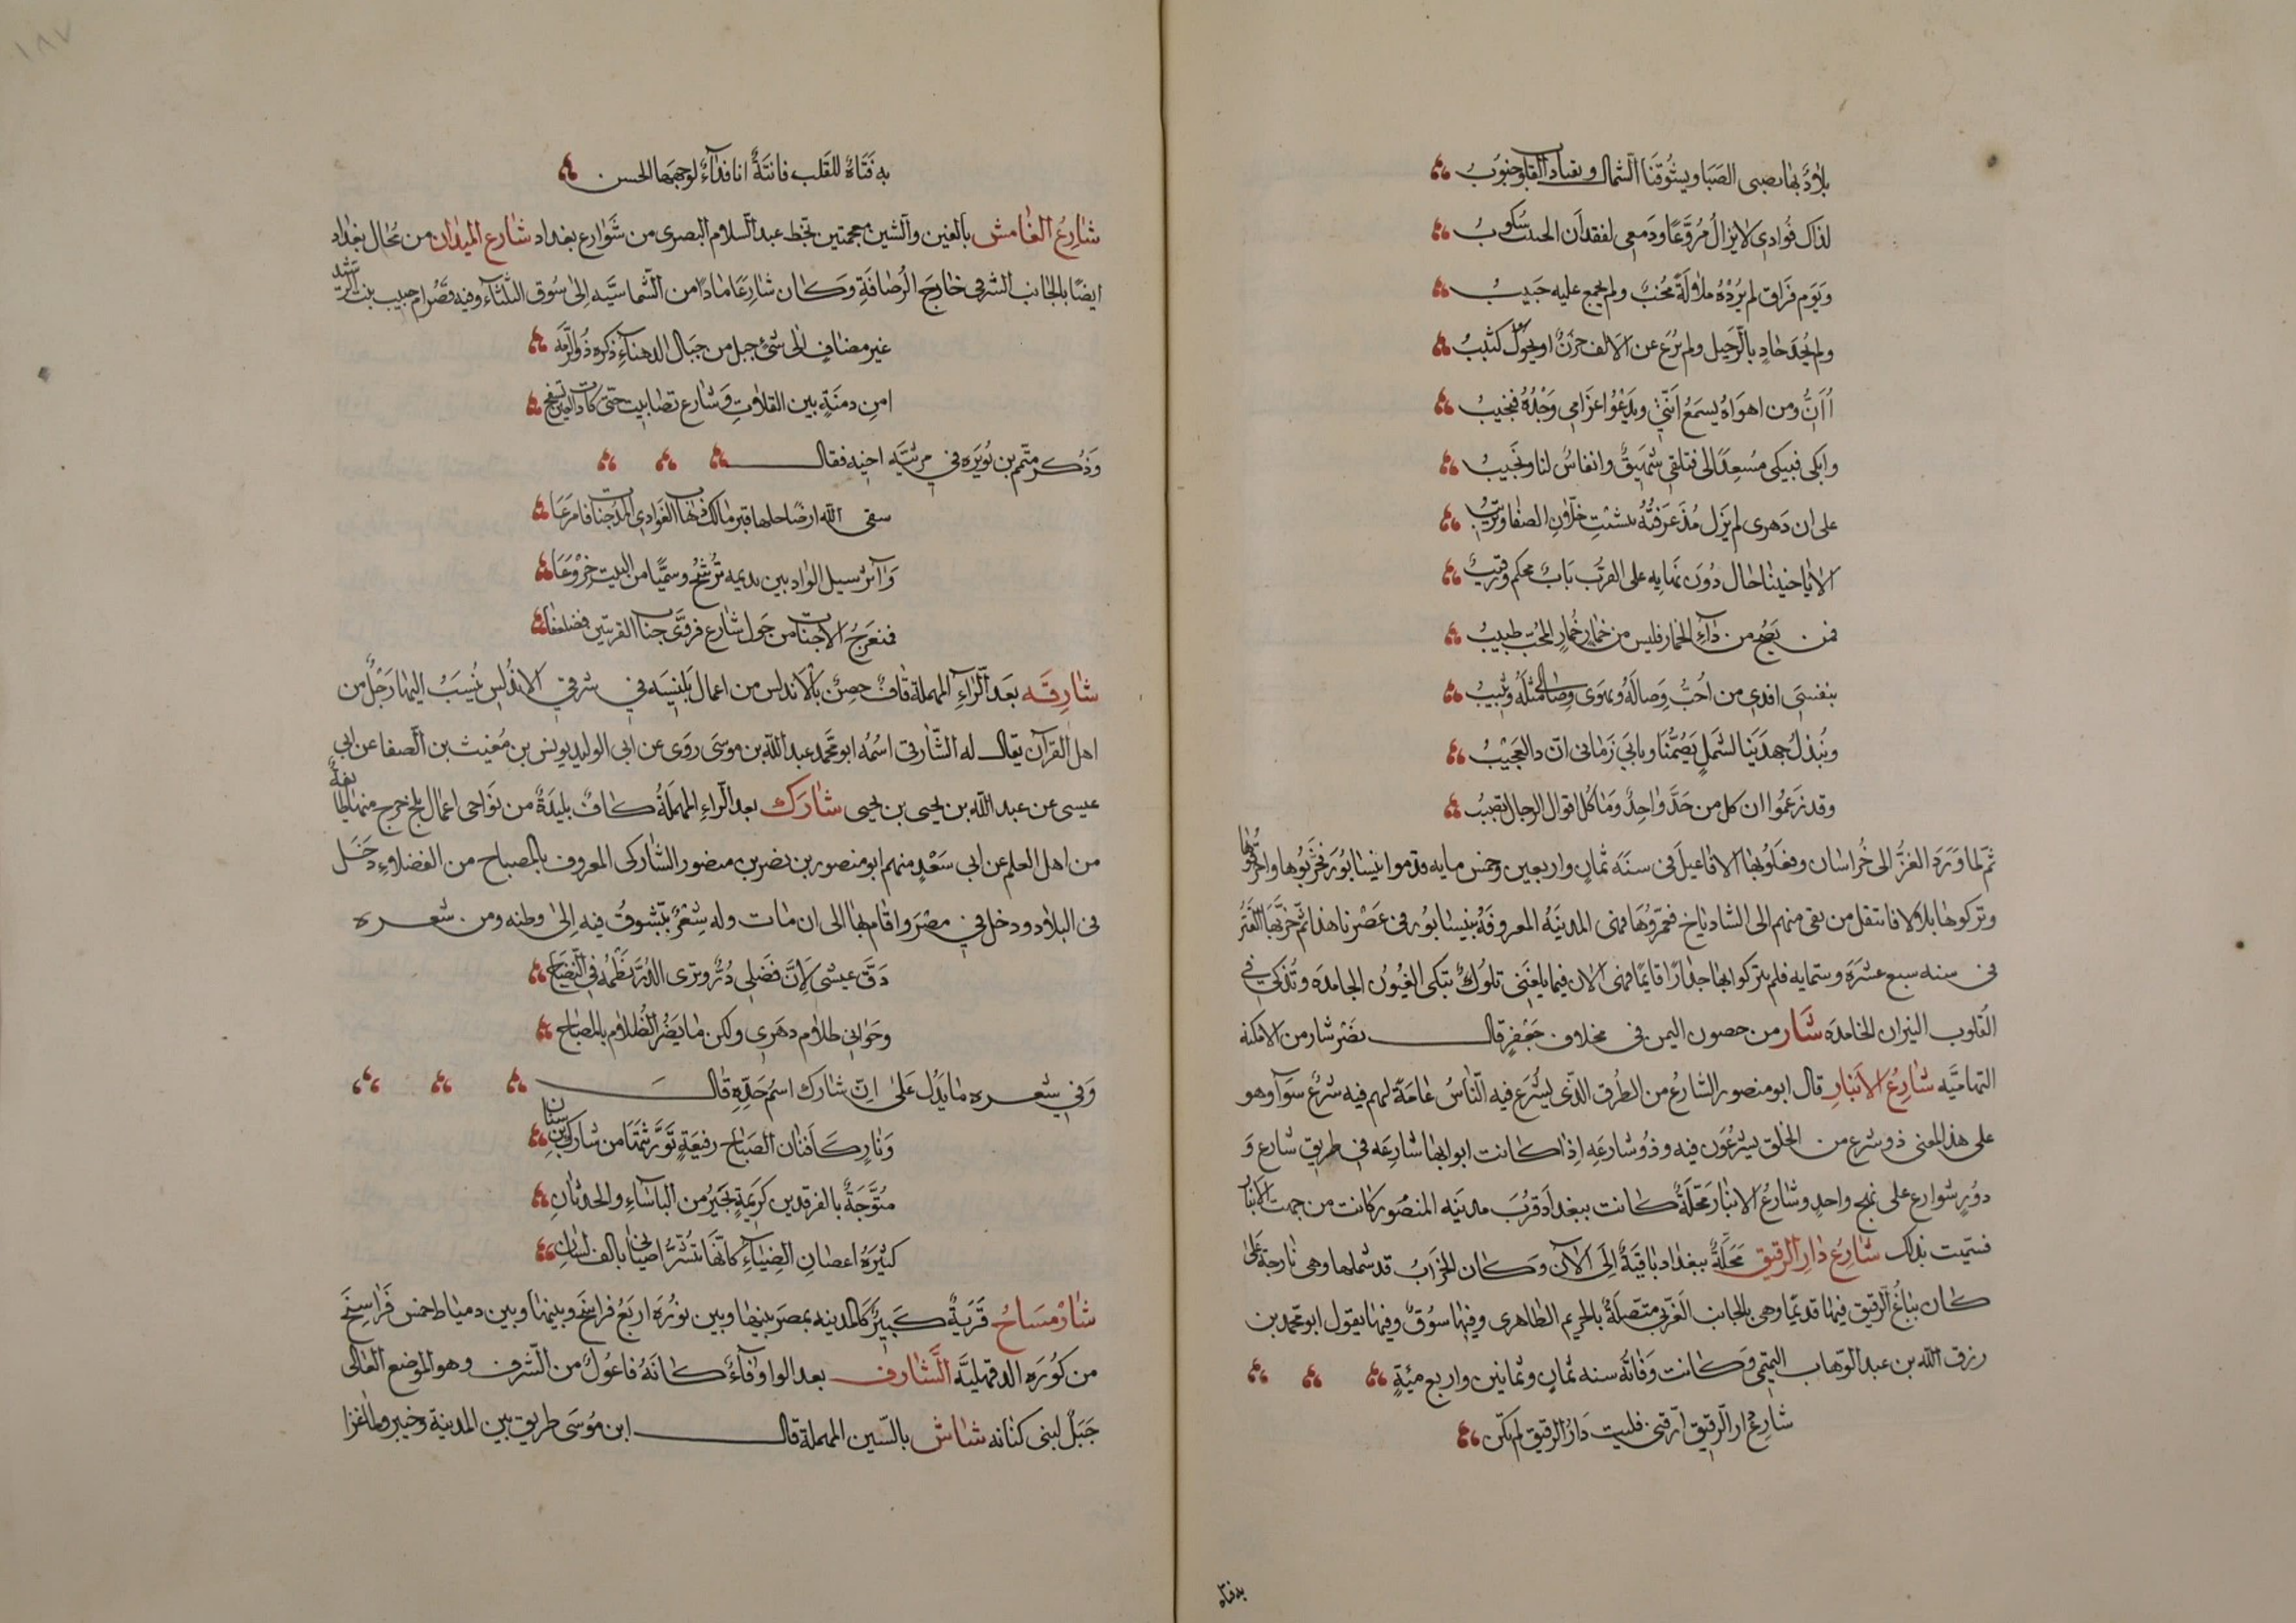 بلاد بها نصبي الصبا ويشوقنا الشمال ويقتاد القلوب جنوب
لذاك فؤادي لا يزال مروعا ودمعي لفقدان الحبيب سكوب
ويوم فراق لم يرده ملالة محب ولم يجمع عليه حبيب
ولم يحد حاد بالرحيل ولم يزع عن الالف حزن او يحول كثيب
أأن ومن اهواه يسمع انتي ويدعو غرامي وجده فيجيب
وابكي فيبكي مسعدا لي فتلقي شهيق وانفاس لنا ونحيب
على ان دهري لم يزل مذ عرفته يشتت خلان الصفا ويريب
الا يا حبيبا حال دون بهايه على القرب باب محكم ورقيب
فمن يصح من داء الخمار فليس من خمار خمار للمحب طبيب
بنفسي افدي من احب وصاله ويهوى وصالي مثله ويثيب
ونبذل جهدينا لشمل يضمنا ويابى زماني ان ذا لعجيب
وقد زعموا ان كل من جد واجد وما كل اقوال الرجال تصيب
ثم لما ورد الغز الى خراسان وفعلوا بها الافاعيل في سنة ثمان واربعين وخمس مايه قدموا نيسابور فخربوها واحرقوها
وتركوها بلالا فانتقل من بقي منهم الى الشاذياخ فعمروها فهي المدينه المعروفة بنيسابور في عصرنا هذا ثم خربها التتر
في سنه سبع عشره وستمايه فلم يتركوا بها جدارا قايما فهي الان فيما بلغني تلول تبكي العيون الجامده وتذكي في
القلوب النيران الخامده شار من حصون اليمن في مخلاف جعفر قال نصر شار من الامكنه
التهاميه شارع الانبار قال ابو منصور الشارع من الطرق الذي يشرع فيه الناس عامة لهم فيه شرع سوآ وهو
على هذا المعنى ذو شرع من الخلق يشرعون فيه وذو شارعه اذا كانت ابوابها شارعه في طريق شارع و
دور شوارع على نهج واحد وشارع الانبار محلة كانت ببغداد قرب مدينه المنصور كانت من جهت الانبار
فسميت بذلك شارع دار الرقيق محلة ببغداد باقية الى الآن وكان الخراب قد شملها وهي نارجة على
كان يباع الرقيق فيها قديما وهي بالجانب الغربي متصلة بالحريم الطاهري وفيها سوق وفيها يقول ابو محمد بن
رزق الله بن عبد الوهاب التميمي وكانت وفاته سنه ثمان وثمانين واربع مئة
شارع دار الرقيق ارقني فليت دار الرقيق لم تكن
به فتاه
به فتاة للقلب فاتنة انا فدآء لوجهها الحسن
شارع الغامش بالغين والشين معجمتين بخط عبد السلام البصري من شوارع بغداد شارع الميدان من محال بغداد
ايضا بالجانب الشرقي خارج الرصافة وكان شارعا مادا من الشماسيه الى سوق الثلثاء وفيه قصر ام حبيب بنت الرشيد
غير مضاف الى شئ جبل من جبال الدهناء ذكره ذو الرمه
امن دمنة بين القلات وشارع تصابيت حتى كادت العين تسفح
وذكر متمم بن نويره في مرثيه اخيه فقال
سقى الله ارضا حلها قبر مالك ذهاب الغوادي المدجنات فامرعا
وآثر سيل الواديين بديمه ترشح وسميا من النبت خروعا
فمنعرج الاجناب من حول شارع فروى جناب القريتين فضلفعا
شارقه بعد الراء المهملة قاف حصن بالاندلس من اعمال بلنسيه في شرقي الاندلس ينسب اليها رجل من
اهل القرآن يقال له الشارقي اسمه ابو محمد عبد الله بن موسى روى عن ابي الوليد يونس بن مغيث بن الصفا عن ابي
عيسى عن عبد الله بن يحيى بن يحيى شارك بعد الراء المهملة كاف بليدة من نواحي اعمال بلخ خرج منها طايفة
من اهل العلم عن ابي سعد منهم ابو منصور بن نصر بن منصور الشاركي المعروف بالمصباح من الفضلاء دخل
في البلاد ودخل في مصر واقام بها الى ان مات وله شعر يتشوق فيه الى وطنه ومن شعره
دق عيشي لان فضلي در وترى الدر نظمه في النصاح
وحواني ظلام دهري ولكن ما يضر الظلام بالمصباح
وفي شعره ما يدل على ان شارك اسم جده قال
ونار كافنان الصباح رفيعة تورثتها من شارك بن سنان
متوجة بالفرقدين كريمة تجير من الباساء والحدثان
كثيره اغصان الضياء كانها تبشر اضيافي بالف لسان
شارمساح قرية كبيرة كالمدينه بمصر بينها وبين بوره اربع فراسخ وبينها وبين دمياط خمس فراسخ
من كوره الدقهليه الشارف بعد الواو فاء كانه فاعول من الشرف وهو الموضع العالي
جبل لبني كنانه شاس بالسين المهملة قال ابن موسى طريق بين المدينة وخيبر ولما غزا
١٨٧